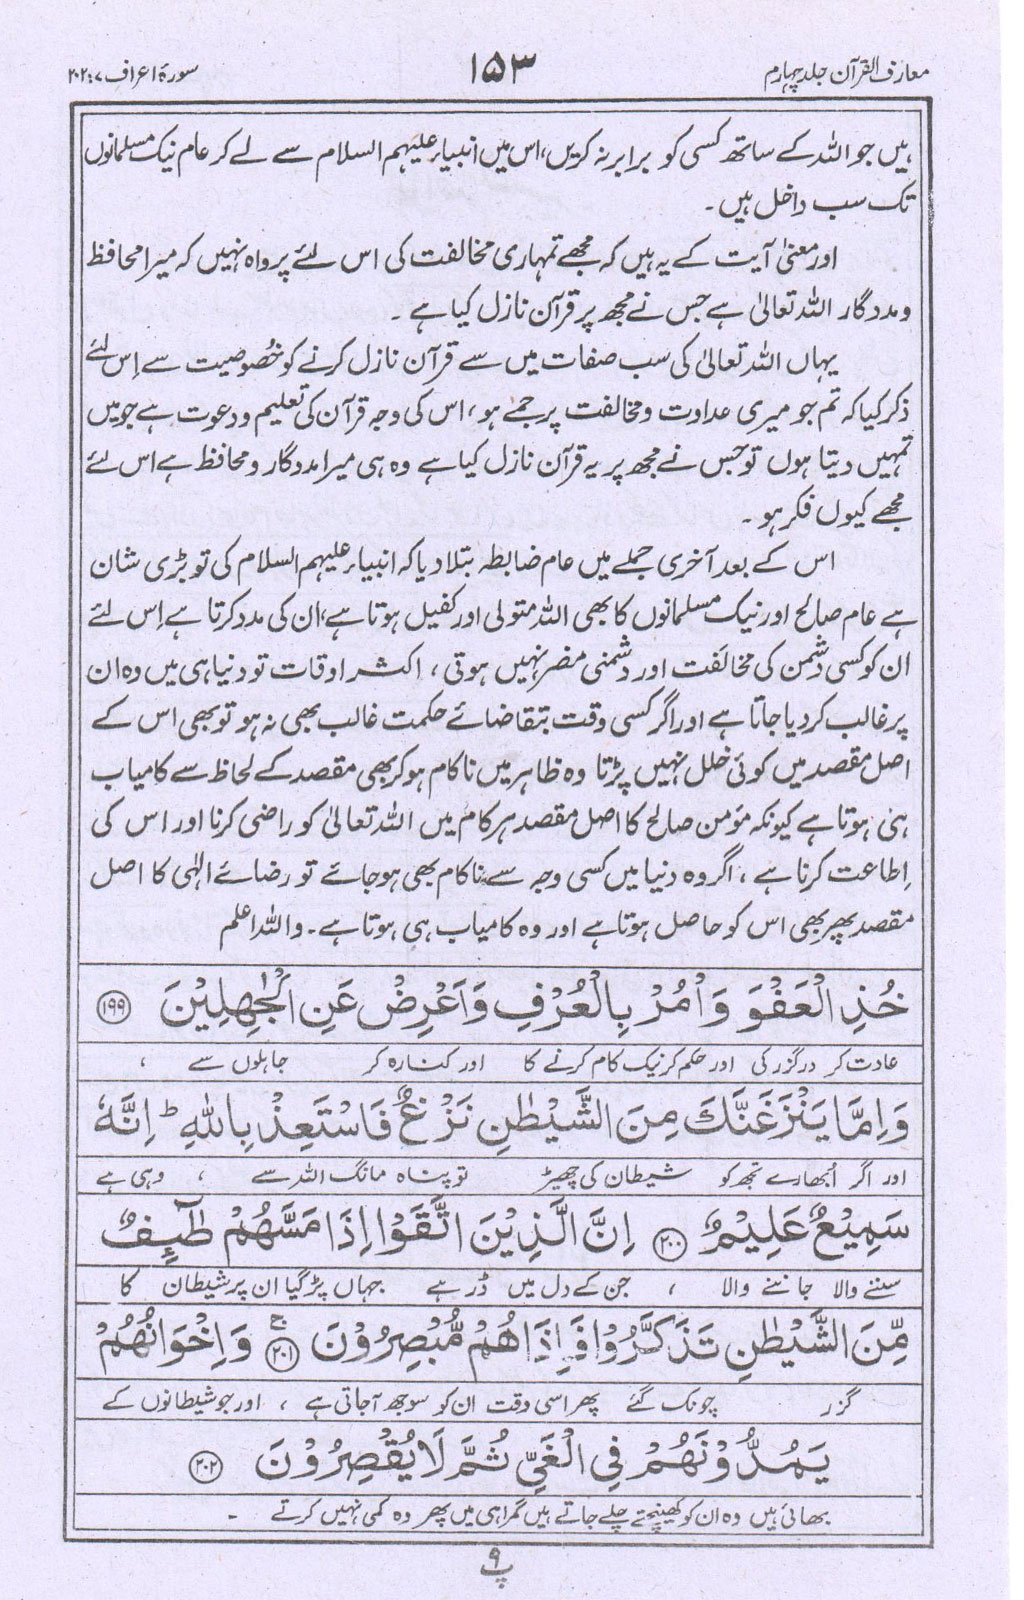 معارف القرآن جلد چہارم
۱۵۳
سورۂ اعراف ۷: ۲۰۲
ہیں جو اللہ کے ساتھ کسی کو برابر نہ کریں، اس میں انبیاء علیہم السلام سے لے کر عام نیک مسلمانوں
تک سب داخل ہیں۔
اور معنیٰ آیت کے یہ ہیں کہ مجھے تمہاری مخالفت کی اس لئے پرواہ نہیں کہ میرا محافظ
و مددگار اللہ تعالیٰ ہے جس نے مجھ پر قرآن نازل کیا ہے۔
یہاں اللہ تعالیٰ کی سب صفات میں سے قرآن نازل کرنے کو خُصوصیت سے اِس لئے
ذکر کیا کہ تم جو میری عداوت و مخالفت پر جمے ہو، اس کی وجہ قرآن کی تعلیم و دعوت ہے جو میں
تمہیں دیتا ہوں تو جس نے مجھ پر یہ قرآن نازل کیا ہے وہ ہی میرا مددگار و محافظ ہے اس لئے
مجھے کیوں فکر ہو۔
اس کے بعد آخری جملے میں عام ضابطہ بتلا دیا کہ انبیاء علیہم السلام کی تو بڑی شان
ہے عام صالح اور نیک مسلمانوں کا بھی اللہ متولی اور کفیل ہوتا ہے، ان کی مدد کرتا ہے اِس لئے
ان کو کسی دشمن کی مخالفت اور دشمنی مضر نہیں ہوتی، اکثر اوقات تو دنیا ہی میں وہ ان
پر غالب کر دیا جاتا ہے اور اگر کسی وقت بتقاضائے حکمت غالب بھی نہ ہو تو بھی اس کے
اصل مقصد میں کوئی خلل نہیں پڑتا وہ ظاہر میں ناکام ہو کر بھی مقصد کے لحاظ سے کامیاب
ہی ہوتا ہے کیونکہ مؤمن صالح کا اصل مقصد ہر کام میں اللہ تعالیٰ کو راضی کرنا اور اس کی
اِطاعت کرنا ہے، اگر وہ دنیا میں کسی وجہ سے ناکام بھی ہو جائے تو رضائے الٰہی کا اصل
مقصد پھر بھی اس کو حاصل ہوتا ہے اور وہ کامیاب ہی ہوتا ہے۔ واللہ اعلم
خُذِ الْعَفْوَ وَاْمُرْ بِالْعُرْفِ وَاَعْرِضْ عَنِ الْجٰهِلِيْنَ ﴿۱۹۹﴾
عادت کر درگزر کی اور حکم کر نیک کام کرنے کا اور کنارہ کر جاہلوں سے ،
وَاِمَّا يَنْزَغَنَّكَ مِنَ الشَّيْطٰنِ نَزْغٌ فَاسْتَعِذْ بِاللّٰهِ ؕ اِنَّهٗ
اور اگر اُبھارے تجھ کو شیطان کی چھیڑ تو پناہ مانگ اللہ سے ، وہی ہے
سَمِيْعٌ عَلِيْمٌ ﴿۲۰۰﴾ اِنَّ الَّذِيْنَ اتَّقَوْا اِذَا مَسَّهُمْ طٰٓئِفٌ
سننے والا جاننے والا ، جن کے دل میں ڈر ہے جہاں پڑ گیا ان پر شیطان کا
مِّنَ الشَّيْطٰنِ تَذَكَّرُوْا فَاِذَا هُمْ مُّبْصِرُوْنَ ﴿۲۰۱﴾ ۚ وَاِخْوَانُهُمْ
گزر چونک گئے پھر اسی وقت ان کو سوجھ آجاتی ہے ، اور جو شیطانوں کے
يَمُدُّوْنَهُمْ فِي الْغَيِّ ثُمَّ لَا يُقْصِرُوْنَ ﴿۲۰۲﴾
بھائی ہیں وہ ان کو کھینچتے چلے جاتے ہیں گمراہی میں پھر وہ کمی نہیں کرتے ۔
پ ۹